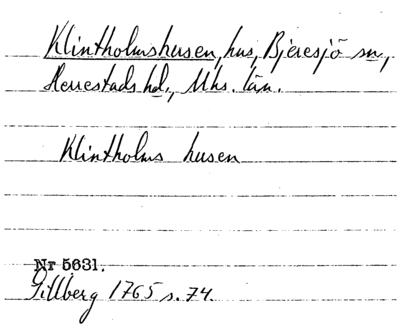 Klintholmshusen, hus, Bjeresjö sn,
Herrestads hd., Mhs. län.
Klintholms husen
Nr 5631.
Gillberg 1765 s. 74.